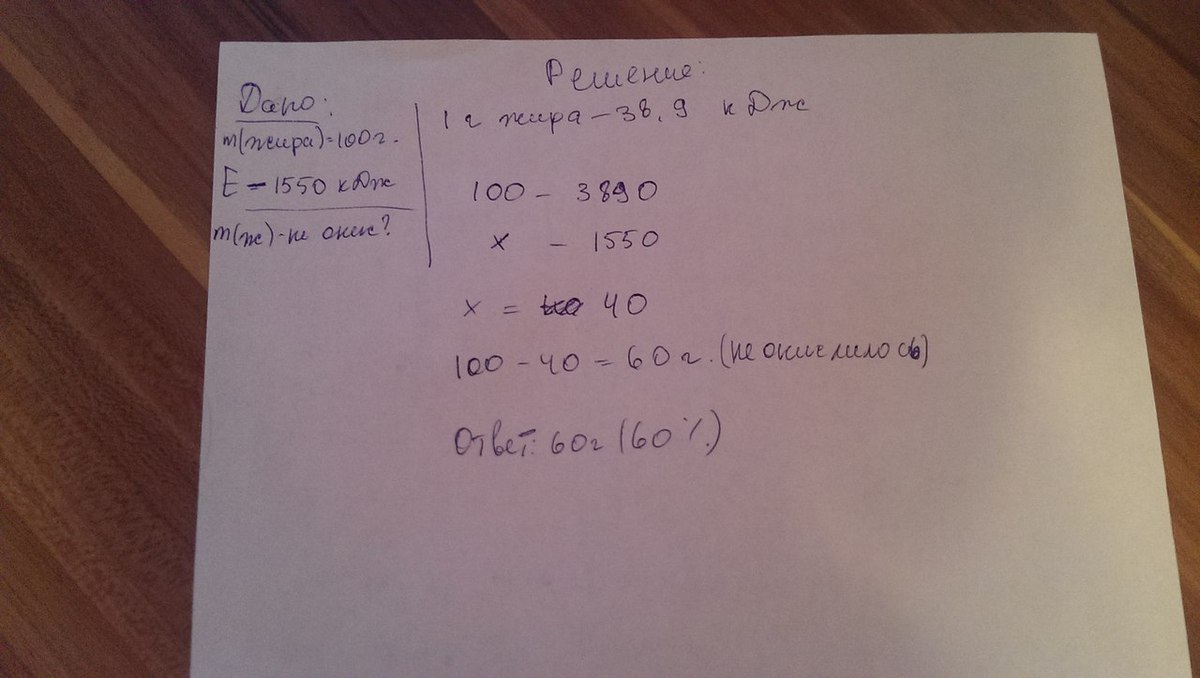 Решение:
Дано:
m(жира)=100г.
E – 1550 кДж
m(ж)-не окис?
1 г жира – 38,9 кДж
100 – 3890
x – 1550
x = 40
100 – 40 = 60 г. (не окислилось)
Ответ: 60г (60%)